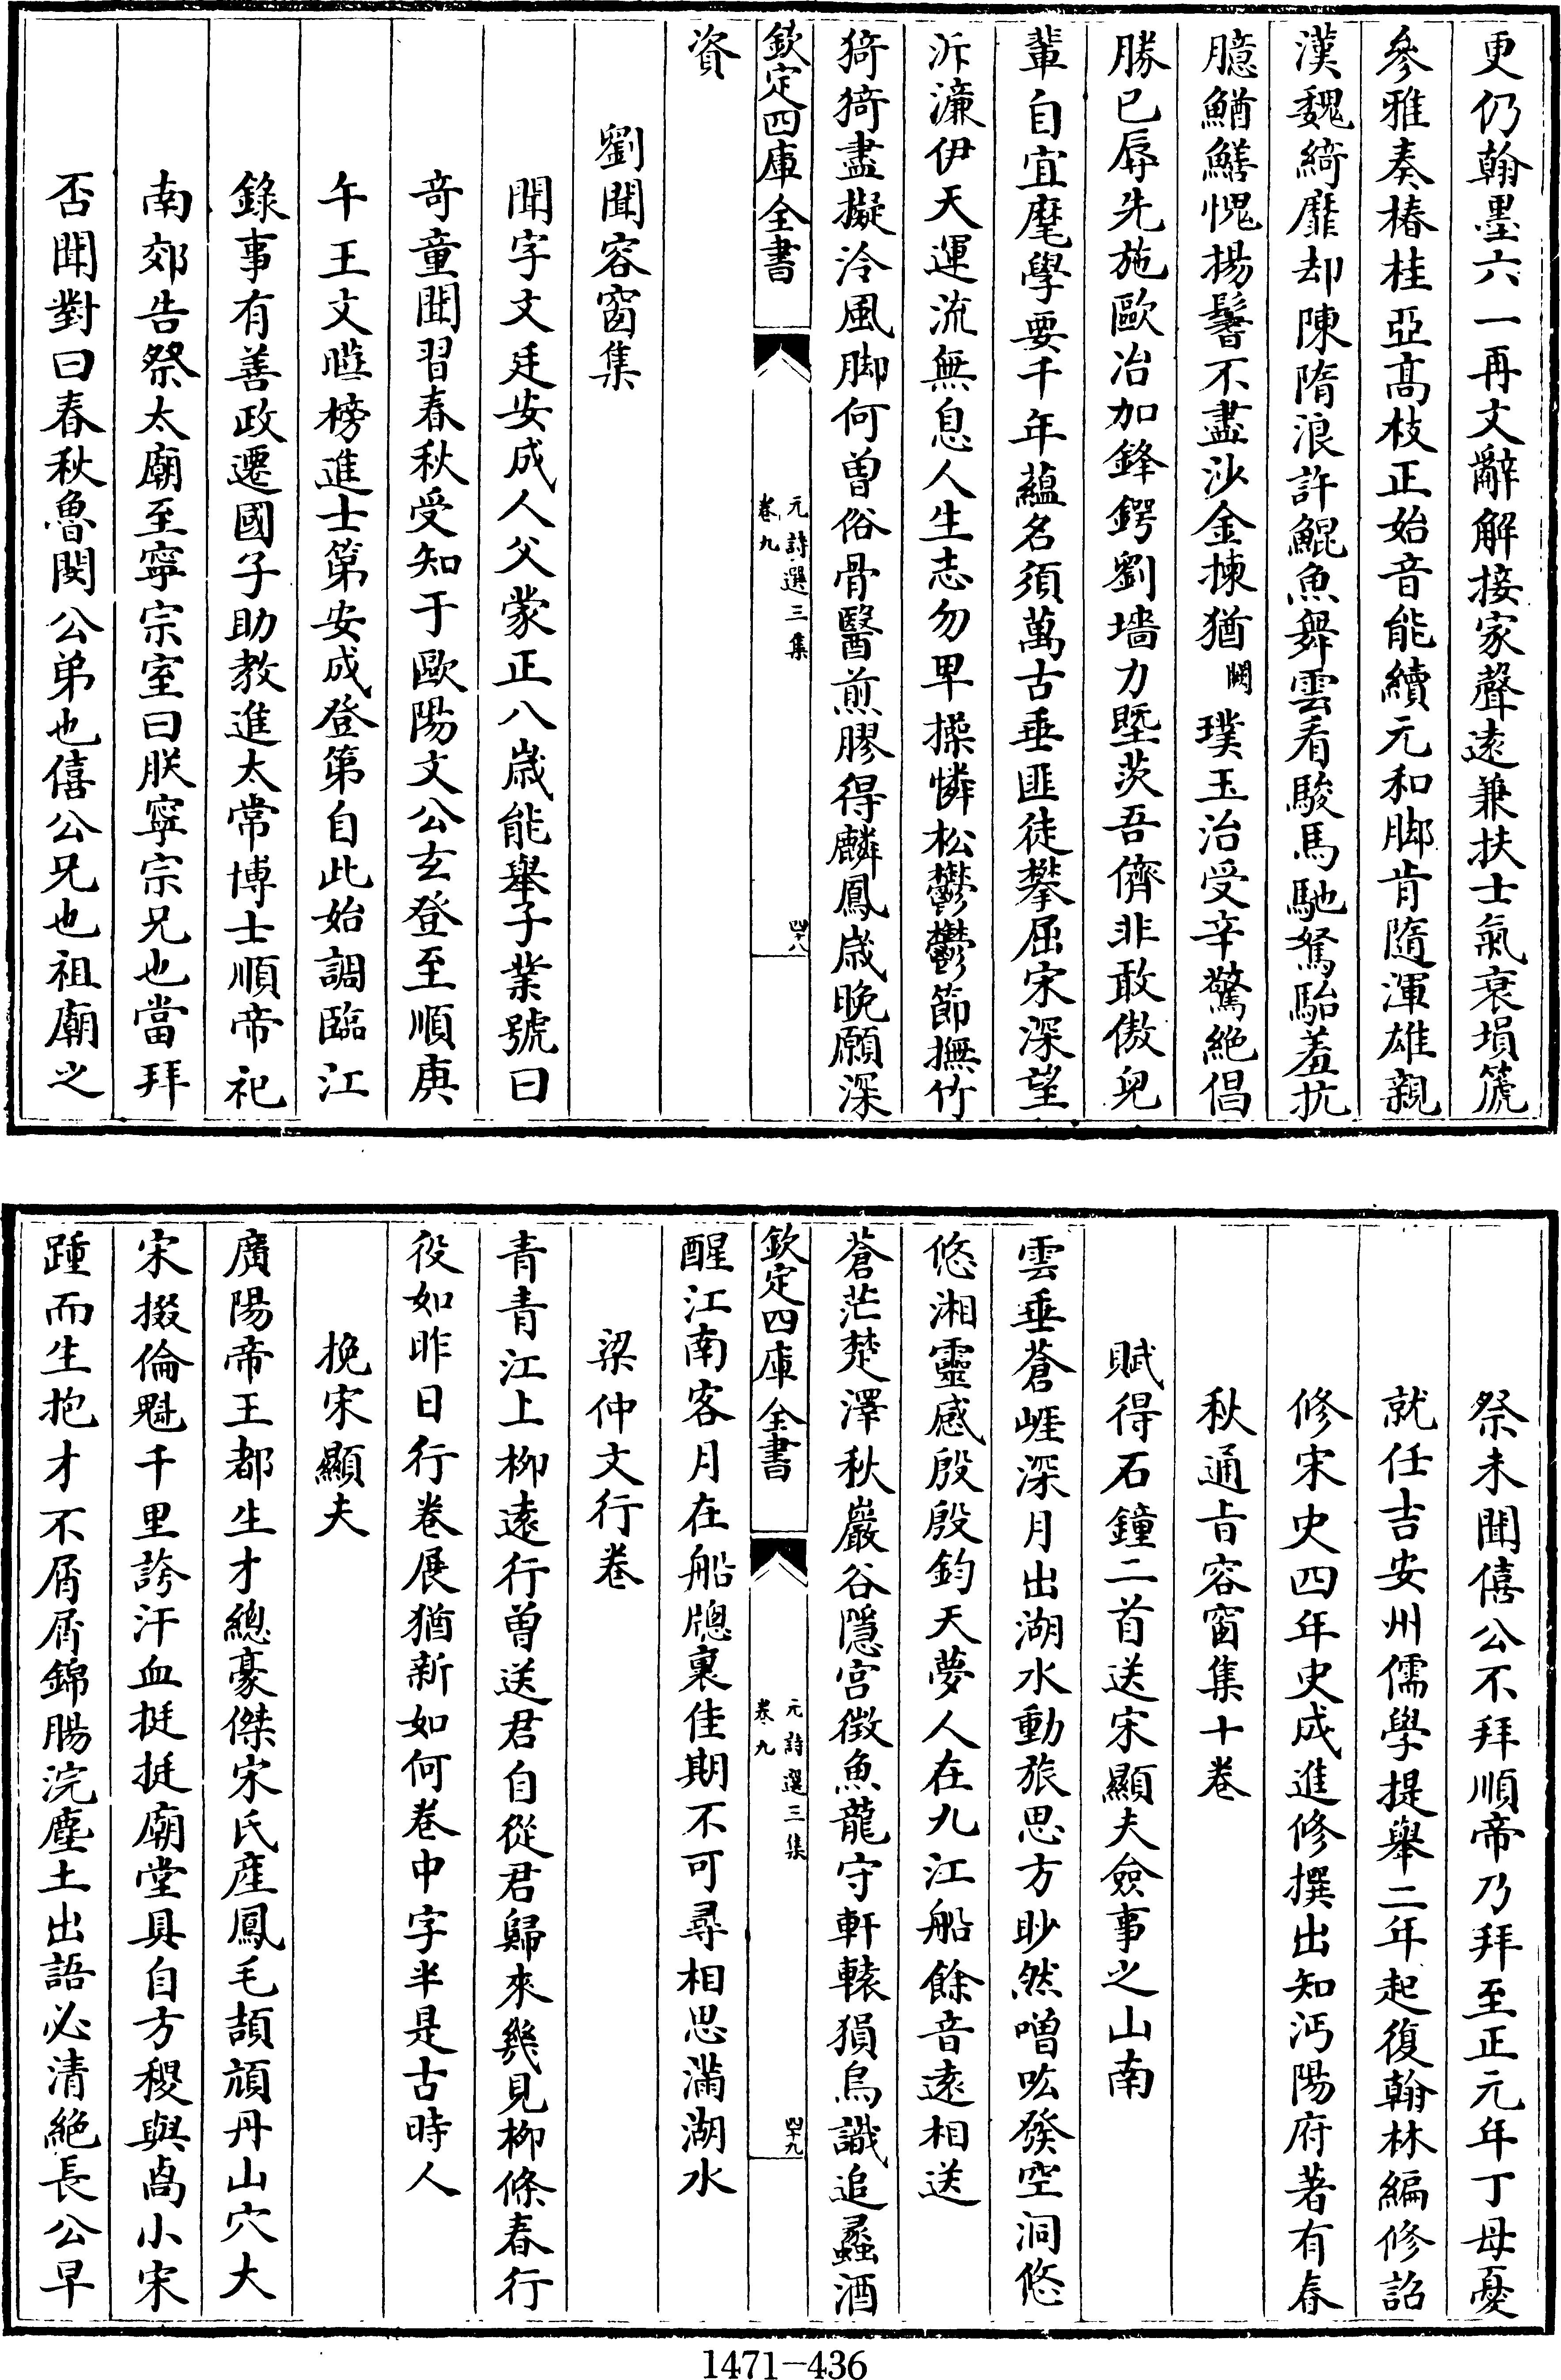 更仍翰墨六一再文辭解接家聲遠兼扶士氣衰塤篪
參雅奏椿桂亞髙枝正始音能續元和脚肯隨渾雄親
漢魏綺靡却陳隋浪許鯤魚舞雲看駿馬馳駑駘羞抗
臆鰌鱔愧揚鬐不盡沙金揀猶闕璞玉治受辛驚絶倡
勝已辱先施歐冶加鋒鍔劉墻力墍茨吾儕非敢傲皃
輩自宜麾學要千年藴名須萬古垂匪徒攀屈宋深望
泝濂伊天運流無息人生志勿卑操憐松鬱鬱節撫竹
猗猗盡擬泠風脚何曽俗骨醫煎膠得麟鳳嵗晚願深
欽定四庫全書
元詩選三集
卷九
四十八
資
劉聞容窗集
聞字文廷安成人父蒙正八嵗能舉子業號曰
竒童聞習春秋受知于歐陽文公玄登至順庚
午王文曮榜進士第安成登第自此始調臨江
錄事有善政遷國子助教進太常博士順帝祀
南郊告祭太廟至寧宗室曰朕寧宗兄也當拜
否聞對曰春秋魯閔公弟也僖公兄也祖廟之
祭未聞僖公不拜順帝乃拜至正元年丁母憂
就任吉安州儒學提舉二年起復翰林編修詔
修宋史四年史成進修撰出知沔陽府著有春
秋通㫖容窗集十卷
賦得石鐘二首送宋顯夫僉事之山南
雲垂蒼崕深月出湖水動旅思方眇然噌吰發空洞悠
悠湘靈感殷殷鈞天夢人在九江船餘音遠相送
蒼茫楚澤秋巖谷隱宫徴魚龍守軒轅猨鳥識追蠡酒
欽定四庫全書
元詩選三集
卷九
四十九
醒江南客月在船牕裏佳期不可尋相思滿湖水
梁仲文行卷
青青江上柳逺行曽送君自從君歸來幾見柳條春行
役如昨日行卷展猶新如何卷中字半是古時人
挽宋顯夫
廣陽帝王都生才總豪傑宋氏産鳳毛頡頏丹山穴大
宋掇倫魁千里誇汗血挺挺廟堂具自方稷與卨小宋
踵而生抱才不屑屑錦腸浣塵土出語必清絶長公早
1471-436